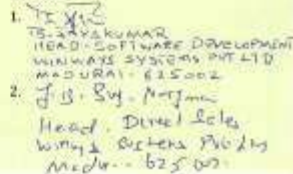 1.
T.S. JAYAKUMAR
HEAD-SOFTWARE DEVELOPMENT
WINWAYS SYSTEMS PVT LTD
MADURAI - 625002
2.
Head. Direct Sales
Winways Systems Pvt Ltd
Madu-- 625 002.